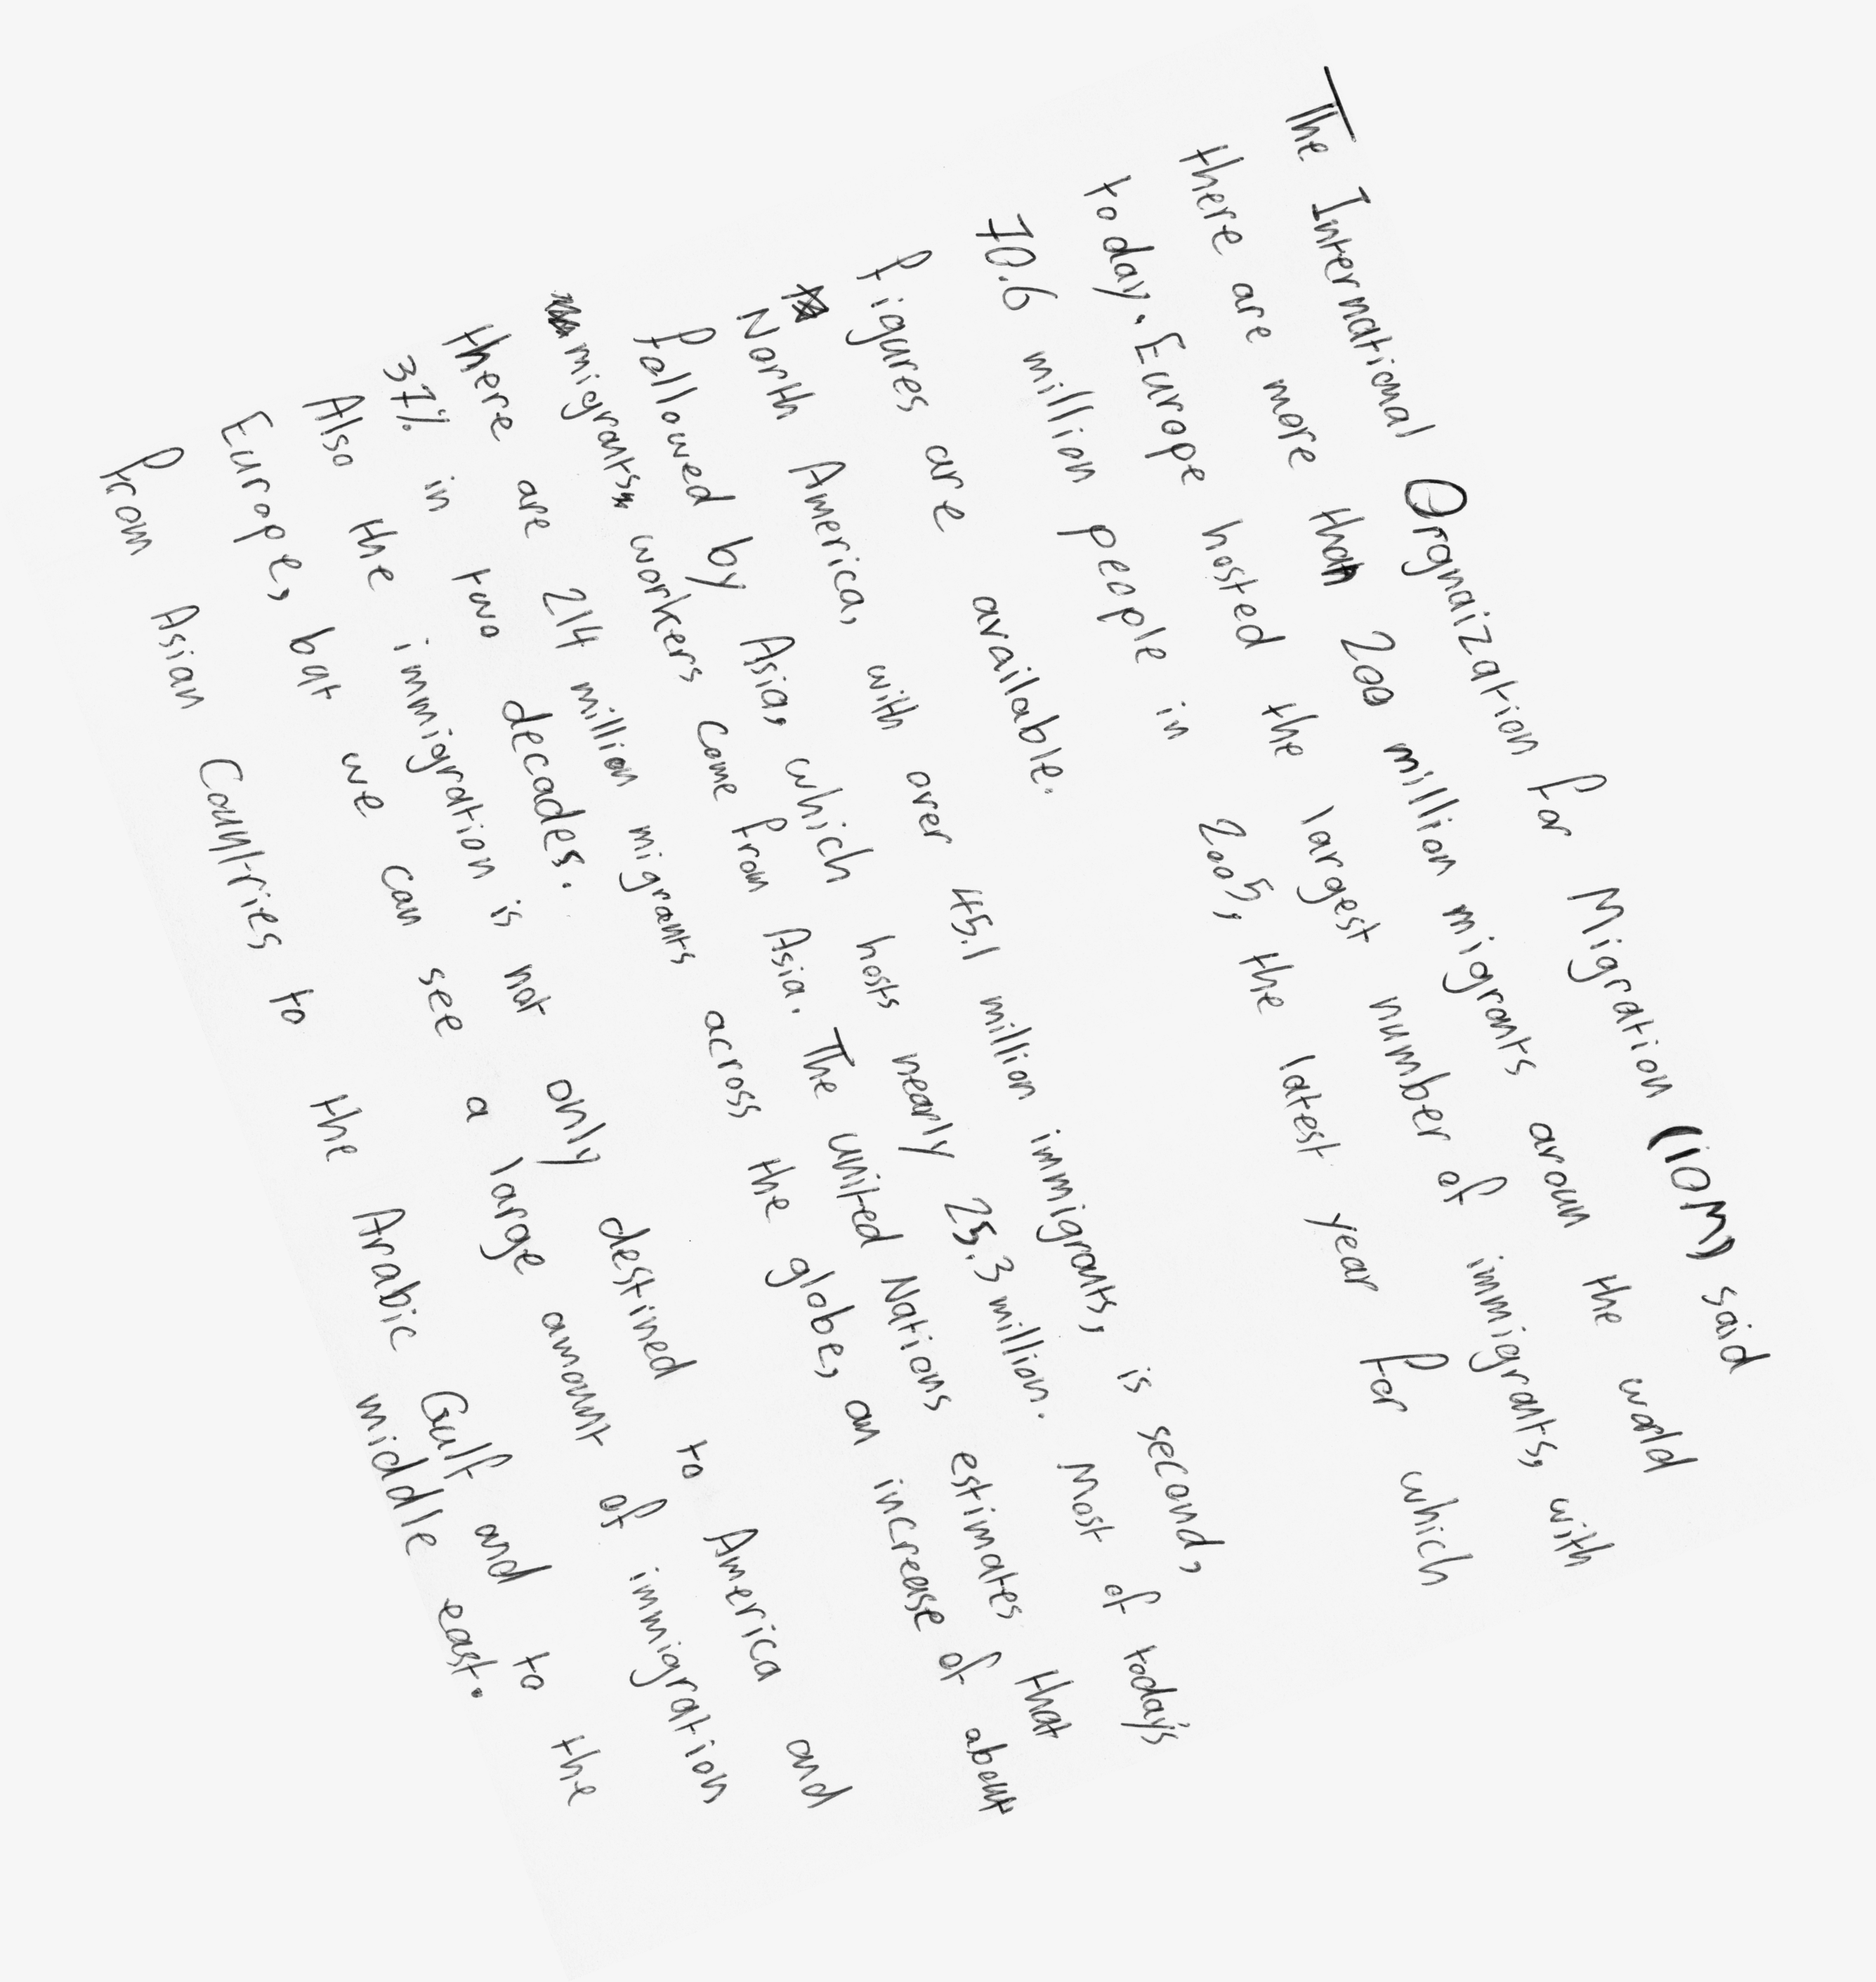 The International Orgnaization for Migration (iOM) said
there are more than 200 million migrants aroun the world
today. Europe hosted the largest number of immigrants, with
70.6 million people in 2005, the latest year for which
figures are available.
North America, with over 45.1 million immigrants, is second,
followed by Asia, which hosts nearly 25.3 million. Most of today's
migrants workers come from Asia. The united Nations estimates that
there are 214 million migrants across the globe, an increase of about
37% in two decades.
Also the immigration is not only destined to America and
Europe, but we can see a large amount of immigration
from Asian Countries to the Arabic Gulf and to the
middle east.